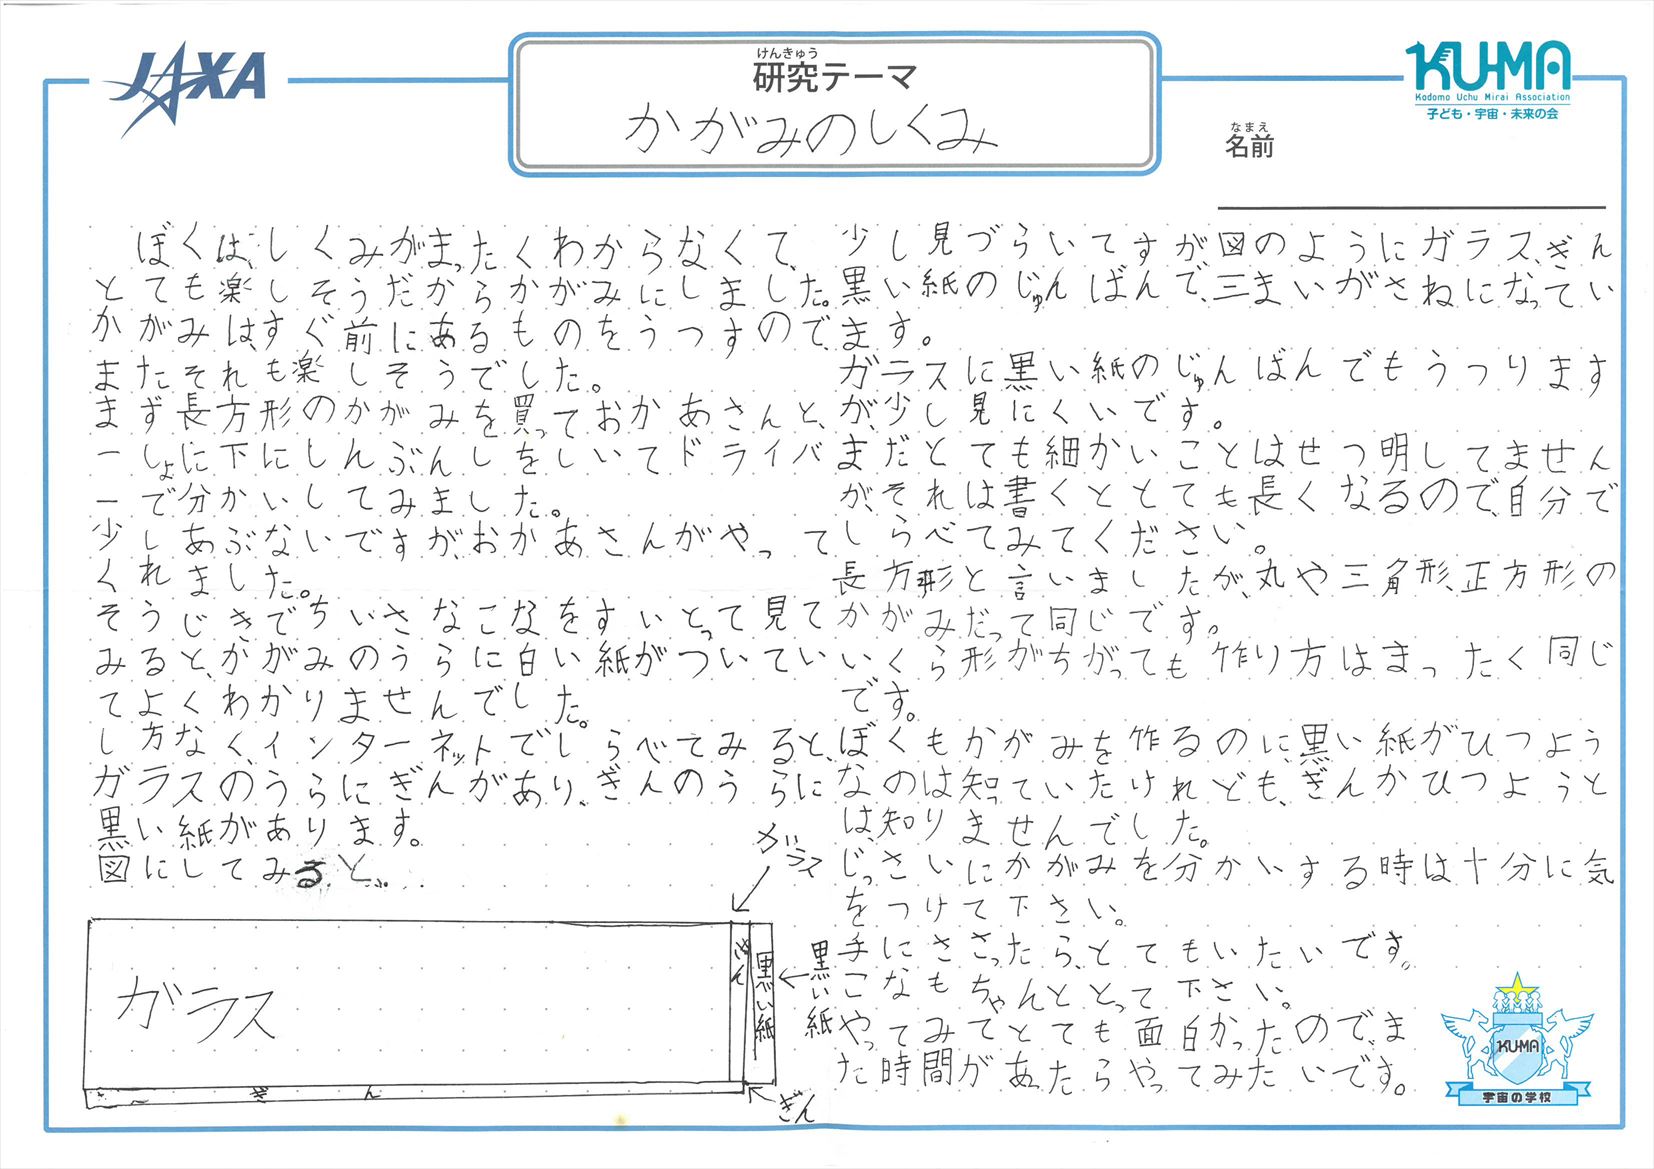 JAXA
けんきゅう
研究テーマ
かがみのしくみ
KU-MA
Kodomo Uchu Mirai Association
子ども・宇宙・未来の会
なまえ
名前
ぼくは、しくみがまったくわからなくて、
とても楽しそうだからかがみにしました。
かがみは、すぐ前にあるものをうつすので、
またそれも楽しそうでした。
まず長方形のかがみを買っておかあさんと、
一しょに下にしんぶんしをしいてドライバ
ーで分かいしてみました。
少しあぶないですが、おかあさんがやって
くれました。
そうじきでちいさなこなをすいとって見て
みると、かがみのうらに白い紙がついてい
てよくわかりませんでした。
し方なく、インターネットでしらべてみると、
ガラスのうらにぎんがあり、ぎんのうらに
黒い紙があります。
図にしてみると、
ガラス
ガラス
ぎん
黒い紙
黒い紙
ぎん
ぎん
少し見づらいですが、図のようにガラス、ぎん
黒い紙のじゅんばんで、三まいがさねになってい
ます。
ガラスに黒い紙のじゅんばんでもうつります
が、少し見にくいです。
まだとても細かいことはせつ明してません
が、それは書くととても長くなるので、自分で
しらべてみてください。
長方形と言いましたが、丸や三角形、正方形の
かがみだって同じです。
いくら形がちがっても作り方はまったく同じ
です。
ぼくもかがみを作るのに、黒い紙がひつよう
なのは知っていたけれども、ぎんかひつようと
は、知りませんでした。
じっさいにかがみを分かいする時は十分に気
をつけて下さい。
手にささったら、とてもいたいです。
こなもちゃんととって下さい。
やってみてとても面白かったので、ま
た時間があったらやってみたいです。
KU-MA
宇宙の学校